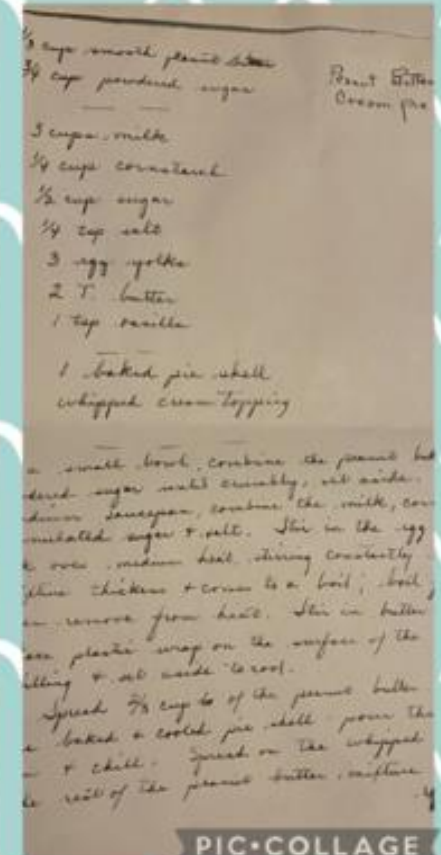 1/3 cup smooth peanut butter
3/4 cup powdered sugar
Peanut Butter
Cream pie
3 cups milk
1/4 cup cornstarch
1/2 cup sugar
1/4 tsp salt
3 egg yolks
2 T. butter
1 tsp vanilla
1 baked pie shell
whipped cream topping
small bowl, combine the peanut but
dered sugar until crumbly, set aside.
dium saucepan, combine the milk, cor
nulated sugar & salt. Stir in the egg
over medium heat, stirring constantly
thickens & comes to a boil; boil
remove from heat. Stir in butter
plastic wrap on the surface of the
illing & set aside to cool.
Spread 2/3 cup of the peanut butter
baked & cooled pie shell pour the
& chill. Spread on the whipped
rest of the peanut butter mixture
PIC•COLLAGE